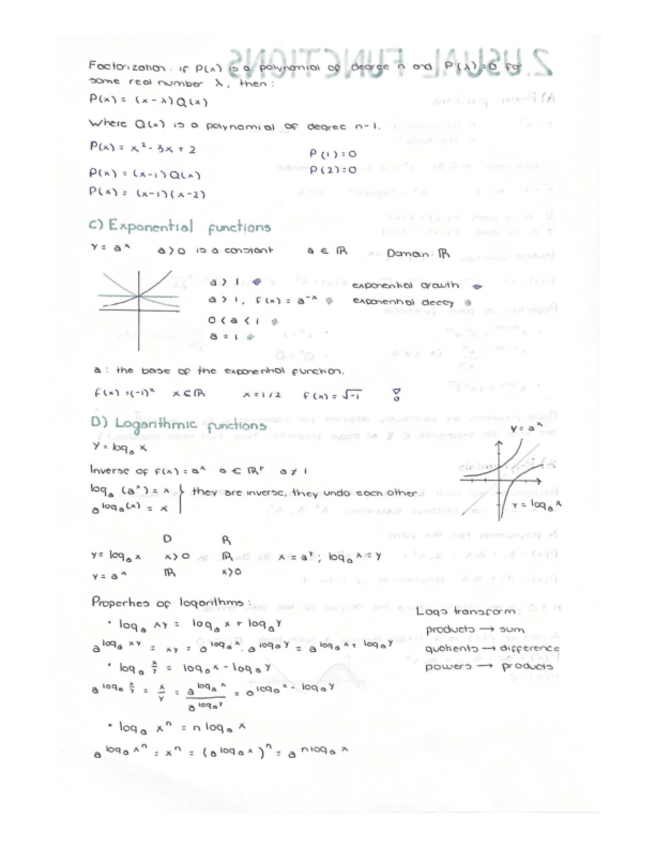 Factorization: if P(x) is a polynomial of degree n and P(λ)=0 for
some real number λ, then:
P(x) = (x - λ) Q(x)
Where Q(x) is a polynomial of degree n-1.
P(x) = x² - 3x + 2 P(1)=0
P(2)=0
P(x) = (x-1) Q(x)
P(x) = (x-1)(x-2)
C) Exponential functions
y = aˣ a>0 is a constant a ∈ ℝ Domain: ℝ
a > 1 exponential growth
a > 1, f(x) = a⁻ˣ exponential decay
0 < a < 1
a = 1
a: the base of the exponential function.
f(x) = (-1)ˣ x ∈ ℝ x = 1/2 f(x) = √-1
D) Logarithmic functions
y = aˣ
y = logₐ x
Inverse of f(x) = aˣ a ∈ ℝ⁺ a ≠ 1
logₐ (aˣ) = x } they are inverse, they undo each other
a^logₐ(x) = x
y = logₐ x
D R
y = logₐ x x>0 ℝ x = aʸ ; logₐ x = y
y = aˣ ℝ x>0
Properties of logarithms:
• logₐ xy = logₐ x + logₐ y
a^logₐ xy = xy = a^logₐ x · a^logₐ y = a^logₐ x + logₐ y
• logₐ x/y = logₐ x - logₐ y
a^logₐ x/y = x/y = a^logₐ x / a^logₐ y = a^logₐ x - logₐ y
• logₐ xⁿ = n logₐ x
a^logₐ xⁿ = xⁿ = (a^logₐ x)ⁿ = a^n logₐ x
Logs transform:
products → sum
quotients → difference
powers → products